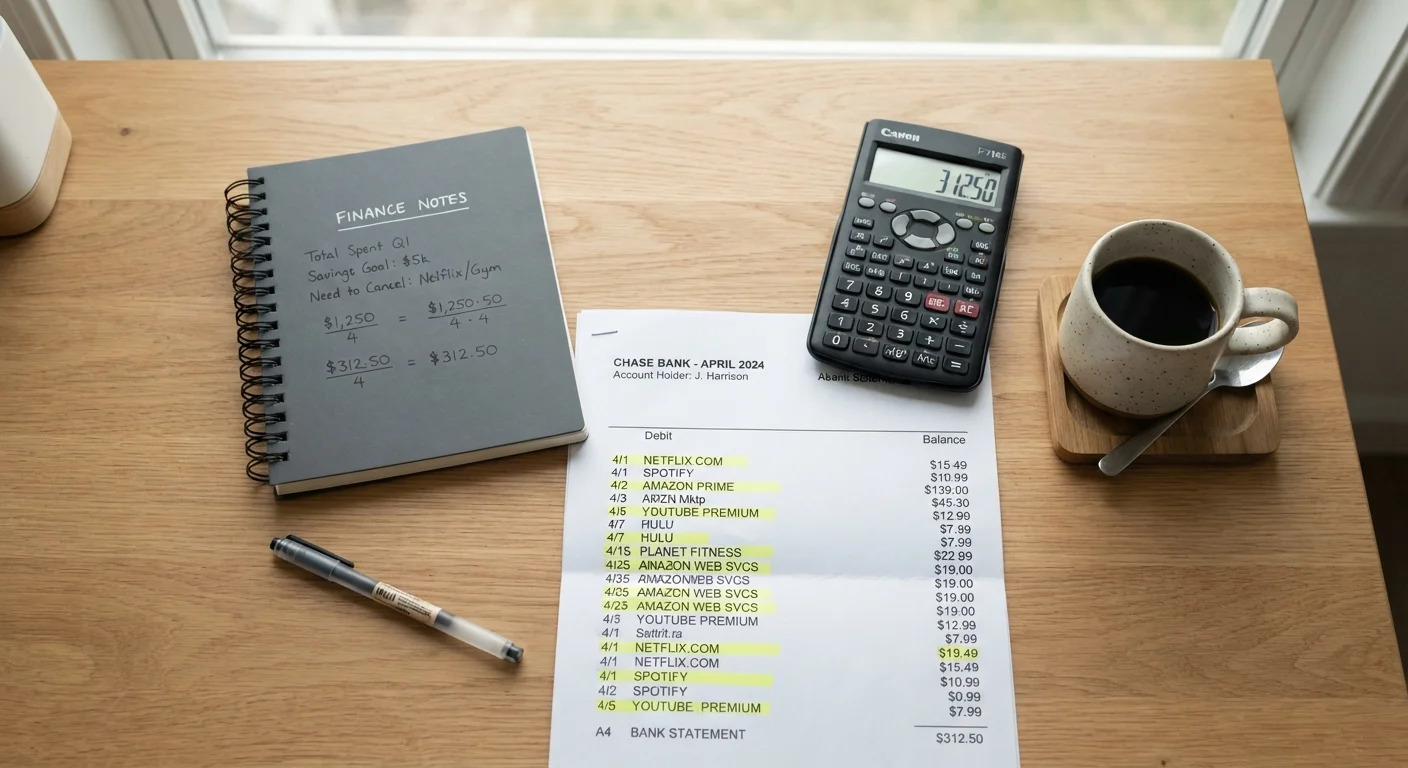 FINANCE NOTES
Total Spent Q1
Savings Goal: $5k
Need to Cancel: Netflix/Gym
$1,250 / 4 = $1,250.50 / 4.4
$312.50 / 4 = $312.50
Canon
31250
7 8 9
4 5 6
1 2 3 + -
0 =
CHASE BANK - APRIL 2024
Account Holder: J. Harrison
Debit Balance
4/1 NETFLIX.COM $15.49
4/1 SPOTIFY $10.99
4/2 AMAZON PRIME $139.00
4/3 $45.30
4/5 YOUTUBE PREMIUM $12.99
4/7 HULU $7.99
4/7 HULU $7.99
4/15 PLANET FITNESS $22.99
4/25 AMAZON WEB SVCS $19.00
4/35 AMAZON WEB SVCS $19.00
4/05 AMAZON WEB SVCS $19.00
4/23 AMAZON WEB SVCS $19.00
4/5 YOUTUBE PREMIUM $12.99
4/1 $7.99
4/1 NETFLIX.COM $19.49
4/1 NETFLIX.COM $15.49
4/1 SPOTIFY $10.99
4/2 SPOTIFY $0.99
4/5 YOUTUBE PREMIUM $7.99
A4 BANK STATEMENT $312.50